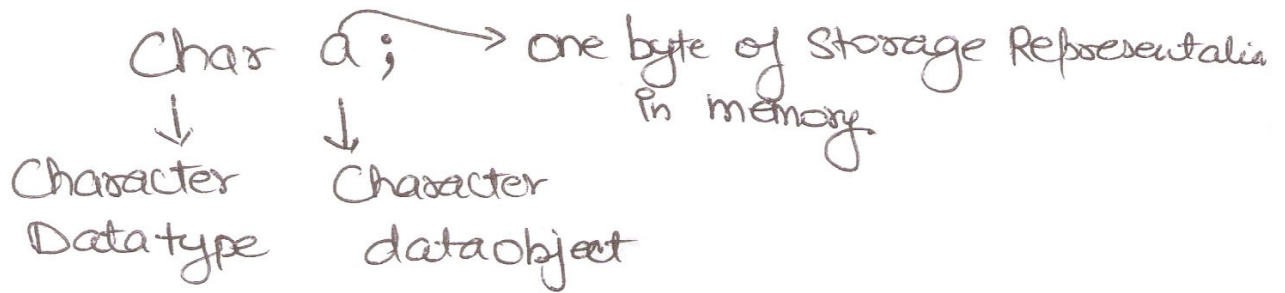 Char a; → one byte of Storage Representatin
in memory
↓ ↓
Character Character
Datatype dataobject